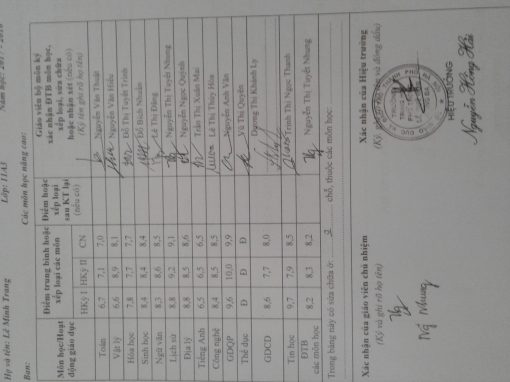 Họ và tên: Lê Minh Trang Lớp: 11A3 Năm học: 2017 - 2018
Ban: Các môn học nâng cao:
Môn học/Hoạt động giáo dục | Điểm trung bình hoặc xếp loại các môn | Điểm hoặc xếp loại sau KT lại (nếu có) | Giáo viên bộ môn ký xác nhận ĐTB môn học, xếp loại, sửa chữa hoặc nhận xét (nếu có) (Ký tên ghi rõ họ tên)
HKỳ I HKỳ II CN
Toán 6,7 7,1 7,0 Nguyễn Văn Thuật
Vật lý 6,6 8,9 8,1 Nguyễn Văn Hiếu
Hóa học 7,8 7,7 7,7 Thị Tuyết Trinh
Sinh học 8,4 8,4 8,4 Đỗ Bích Nhuần
Ngữ văn 8,3 8,6 8,5 Lê Thị Dũng
Lịch sử 8,8 9,2 9,1 Nguyễn Thị Tuyết Nhung
Địa lý 8,8 8,5 8,6 Nguyễn Ngọc Quỳnh
Tiếng Anh 6,5 6,5 6,5 Trần Thị Xuân Mai
Công nghệ 8,4 8,5 8,5 Lê Thị Thúy Hòa
GDQP 9,6 10,0 9,9 Nguyễn Anh Văn
Thể dục Đ Đ Đ Vũ Thị Quyên
GDCD 8,6 7,7 8,0 Dương Thị Khánh Ly
Tin học 9,7 7,9 8,5 Trịnh Thị Ngọc Thanh
ĐTB các môn học 8,2 8,3 8,2 Nguyễn Thị Tuyết Nhung
Trong bảng này có sửa chữa ở: chỗ, thuộc các môn học:
Xác nhận của giáo viên chủ nhiệm Xác nhận của Hiệu trưởng
(Ký và ghi rõ họ tên) (Ký, ghi rõ họ tên và đóng dấu)
HIỆU TRƯỞNG
Nhung
Nguyễn Hồng Hải